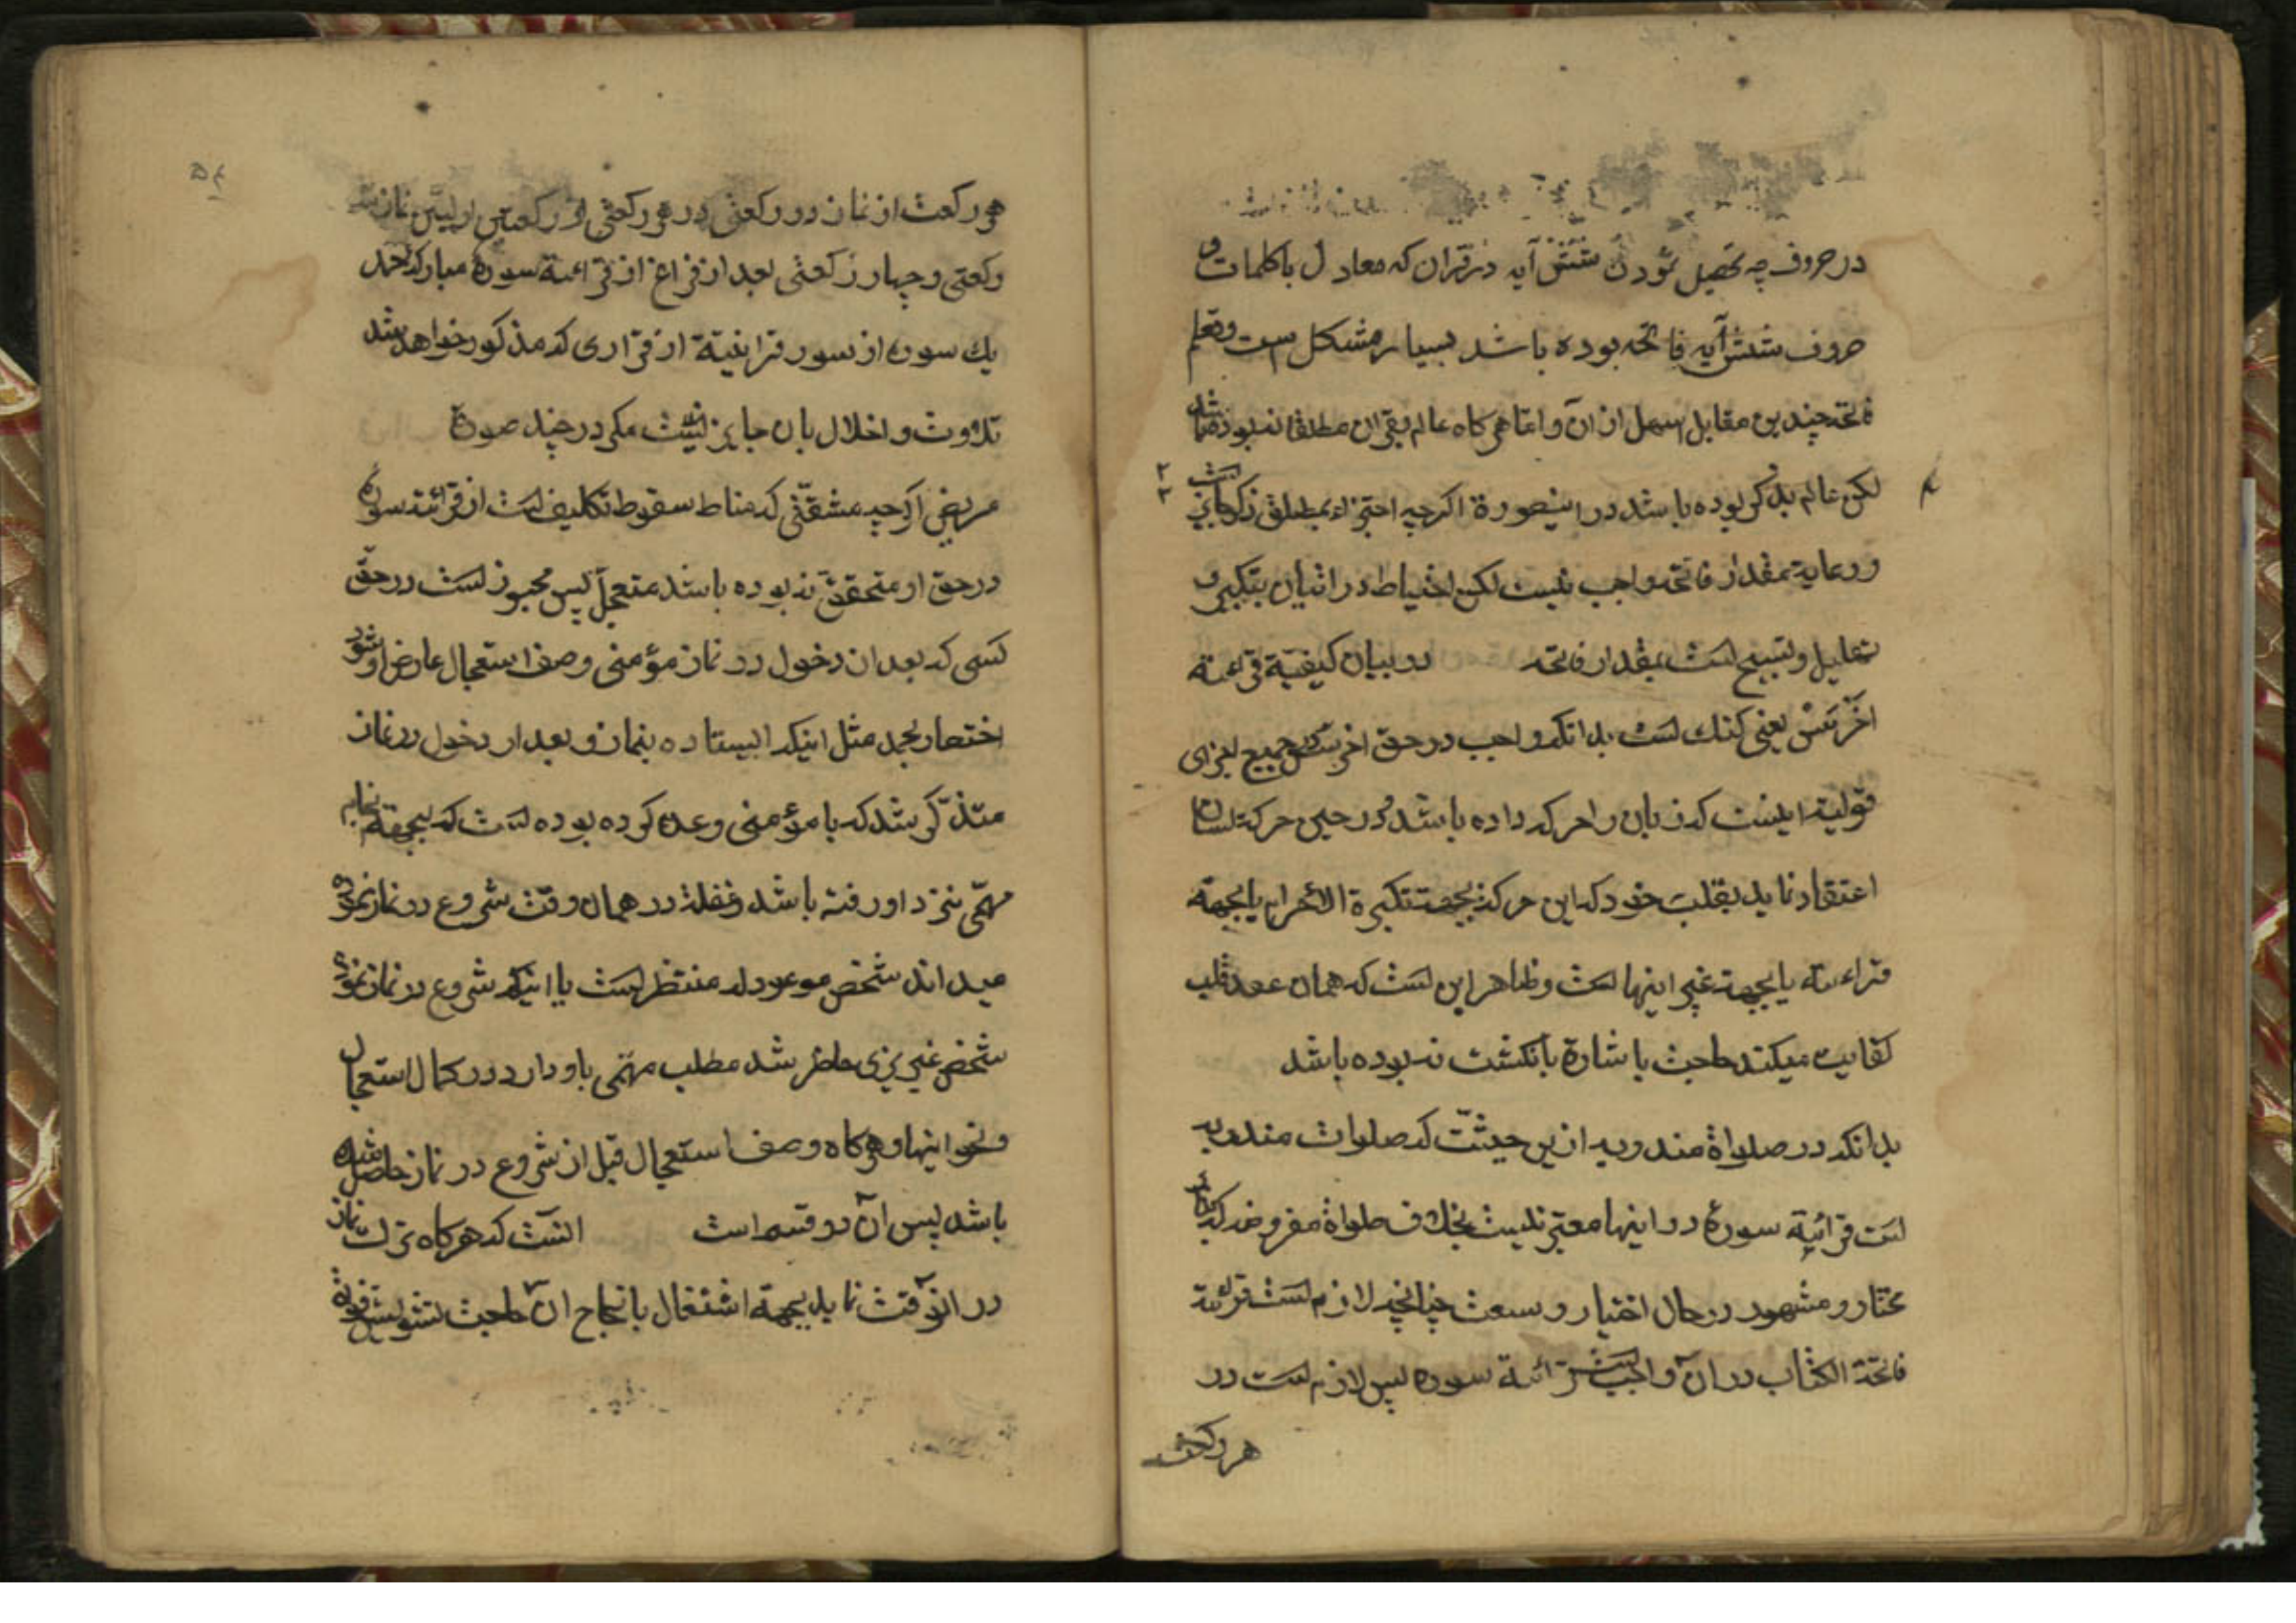 در حروف چه تحصیل نمودن شش آیه در قران که معادل با کلمات و
حروف شش آیه فاتحه بوده باشد بسیار مشکل است وتعلم
فاتحه چندین مقابل اسهل از ان و اما هرکاه عالم بقران مطلقا نبوده باشد
لکن عالم بذکر بوده باشد در اینصورة اکرچه اجتزاء بمطلق ذکر کافیست
ورعایة مقدار فاتحه واجب نیست لکن احتیاط در اتیان بتکبیر و
تهلیل و تسبیح است بمقدار فاتحه در بیان کیفیة قرائة
اخرس یعنی کنك است بدانکه واجب در حق اخرس در جمیع اجزای
قولیة اینست که زبان را حرکه داده باشد و در حین حرکة لسان
اعتقاد نماید بقلب خود که این حرکة بجهة تکبیرة الاحرام یا بجهة
قراءته یا بجهة غیر اینها است وظاهر این است که همان عقد قلب
کفایت میکند حاجت باشارة بانکشت نبوده باشد
بدانکه در صلواة مندوبه ازین حیثیّت که صلوات مندوبه
است قرائة سورۀ در اینها معتبر نیست بخلاف صلواة مفروضه که بنابر
مختار و مشهور در حال اختیار و سعت چنانچه لازم است قرائة
فاتحة الکتاب در آن واجب است قرائة سوره پس لازم است در
هر رکعت
۵۴
هر رکعت از نماز دو رکعتی در هر رکعتی از رکعتین اولیین نماز سه
رکعتی و چهار رکعتی بعد از فراغ از قرائة سورۀ مبارکه حمد
یك سوره از سور قرانیة از قراری که مذکور خواهد شد
تلاوت و اخلال بان جایز نیست مکر در چند صورة
مریض اکرچه مشقّتی که مناط سقوط تکلیف است از قرائة سوره
در حق او متحقق نبوده باشد متعجل پس مجوز است در حق
کسی که بعد از دخول در نماز مؤمنی وصف استعجال عارض او شود
اختصار بحمد مثل اینکه ایستاده بنماز و بعد از دخول در نماز
متذکّر شد که با مؤمنی وعده کرده بوده است که بجهة انجام
مهمّی بنزد او رفته باشد غفلة در همان وقت شروع در نماز نموده
میداند شخص موعود له منتظر است یا اینکه شروع در نماز نموده
شخص عزیزی حاضر شد مطلب مهمّی باو دارد در کمال استعجال
ونحو اینها و هرکاه وصف استعجال قبل از شروع در نماز حاصل شده
باشد پس آن دو قسم است انست که هرکاه ترك نماز
در انوقت نماید بجهة اشتغال بانجاح آن حاجت